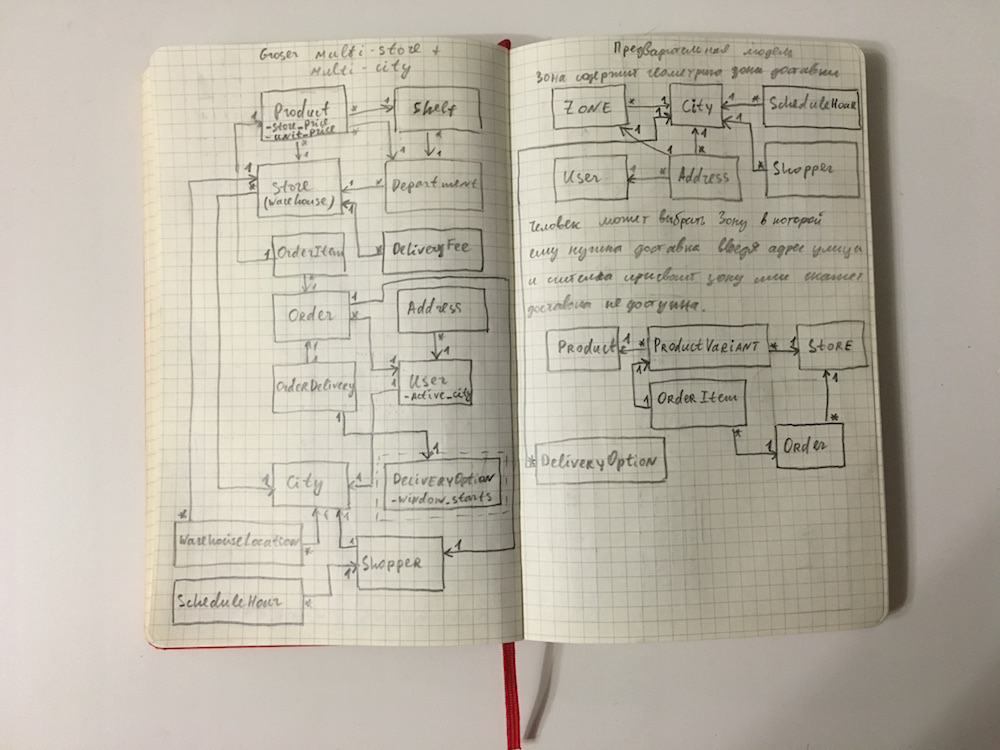 Groser multi-store +
multi-city
Product
-store_price
-unit_price
Shelf
Store
(warehouse)
Department
OrderItem
DeliveryFee
Order
Address
OrderDelivery
User
-active_city
City
DeliveryOption
-window_starts
WarehouseLocation
Shopper
ScheduleHour
Предварительная модель
Зона содержит геометрию зоны доставки
ZONE
City
ScheduleHour
User
Address
Shopper
Человек может выбрать Зону в которой
ему нужна доставка введя адрес улицы
и система присвоит зону или скажет
доставка не доступна.
Product
ProductVariant
Store
OrderItem
Order
DeliveryOption